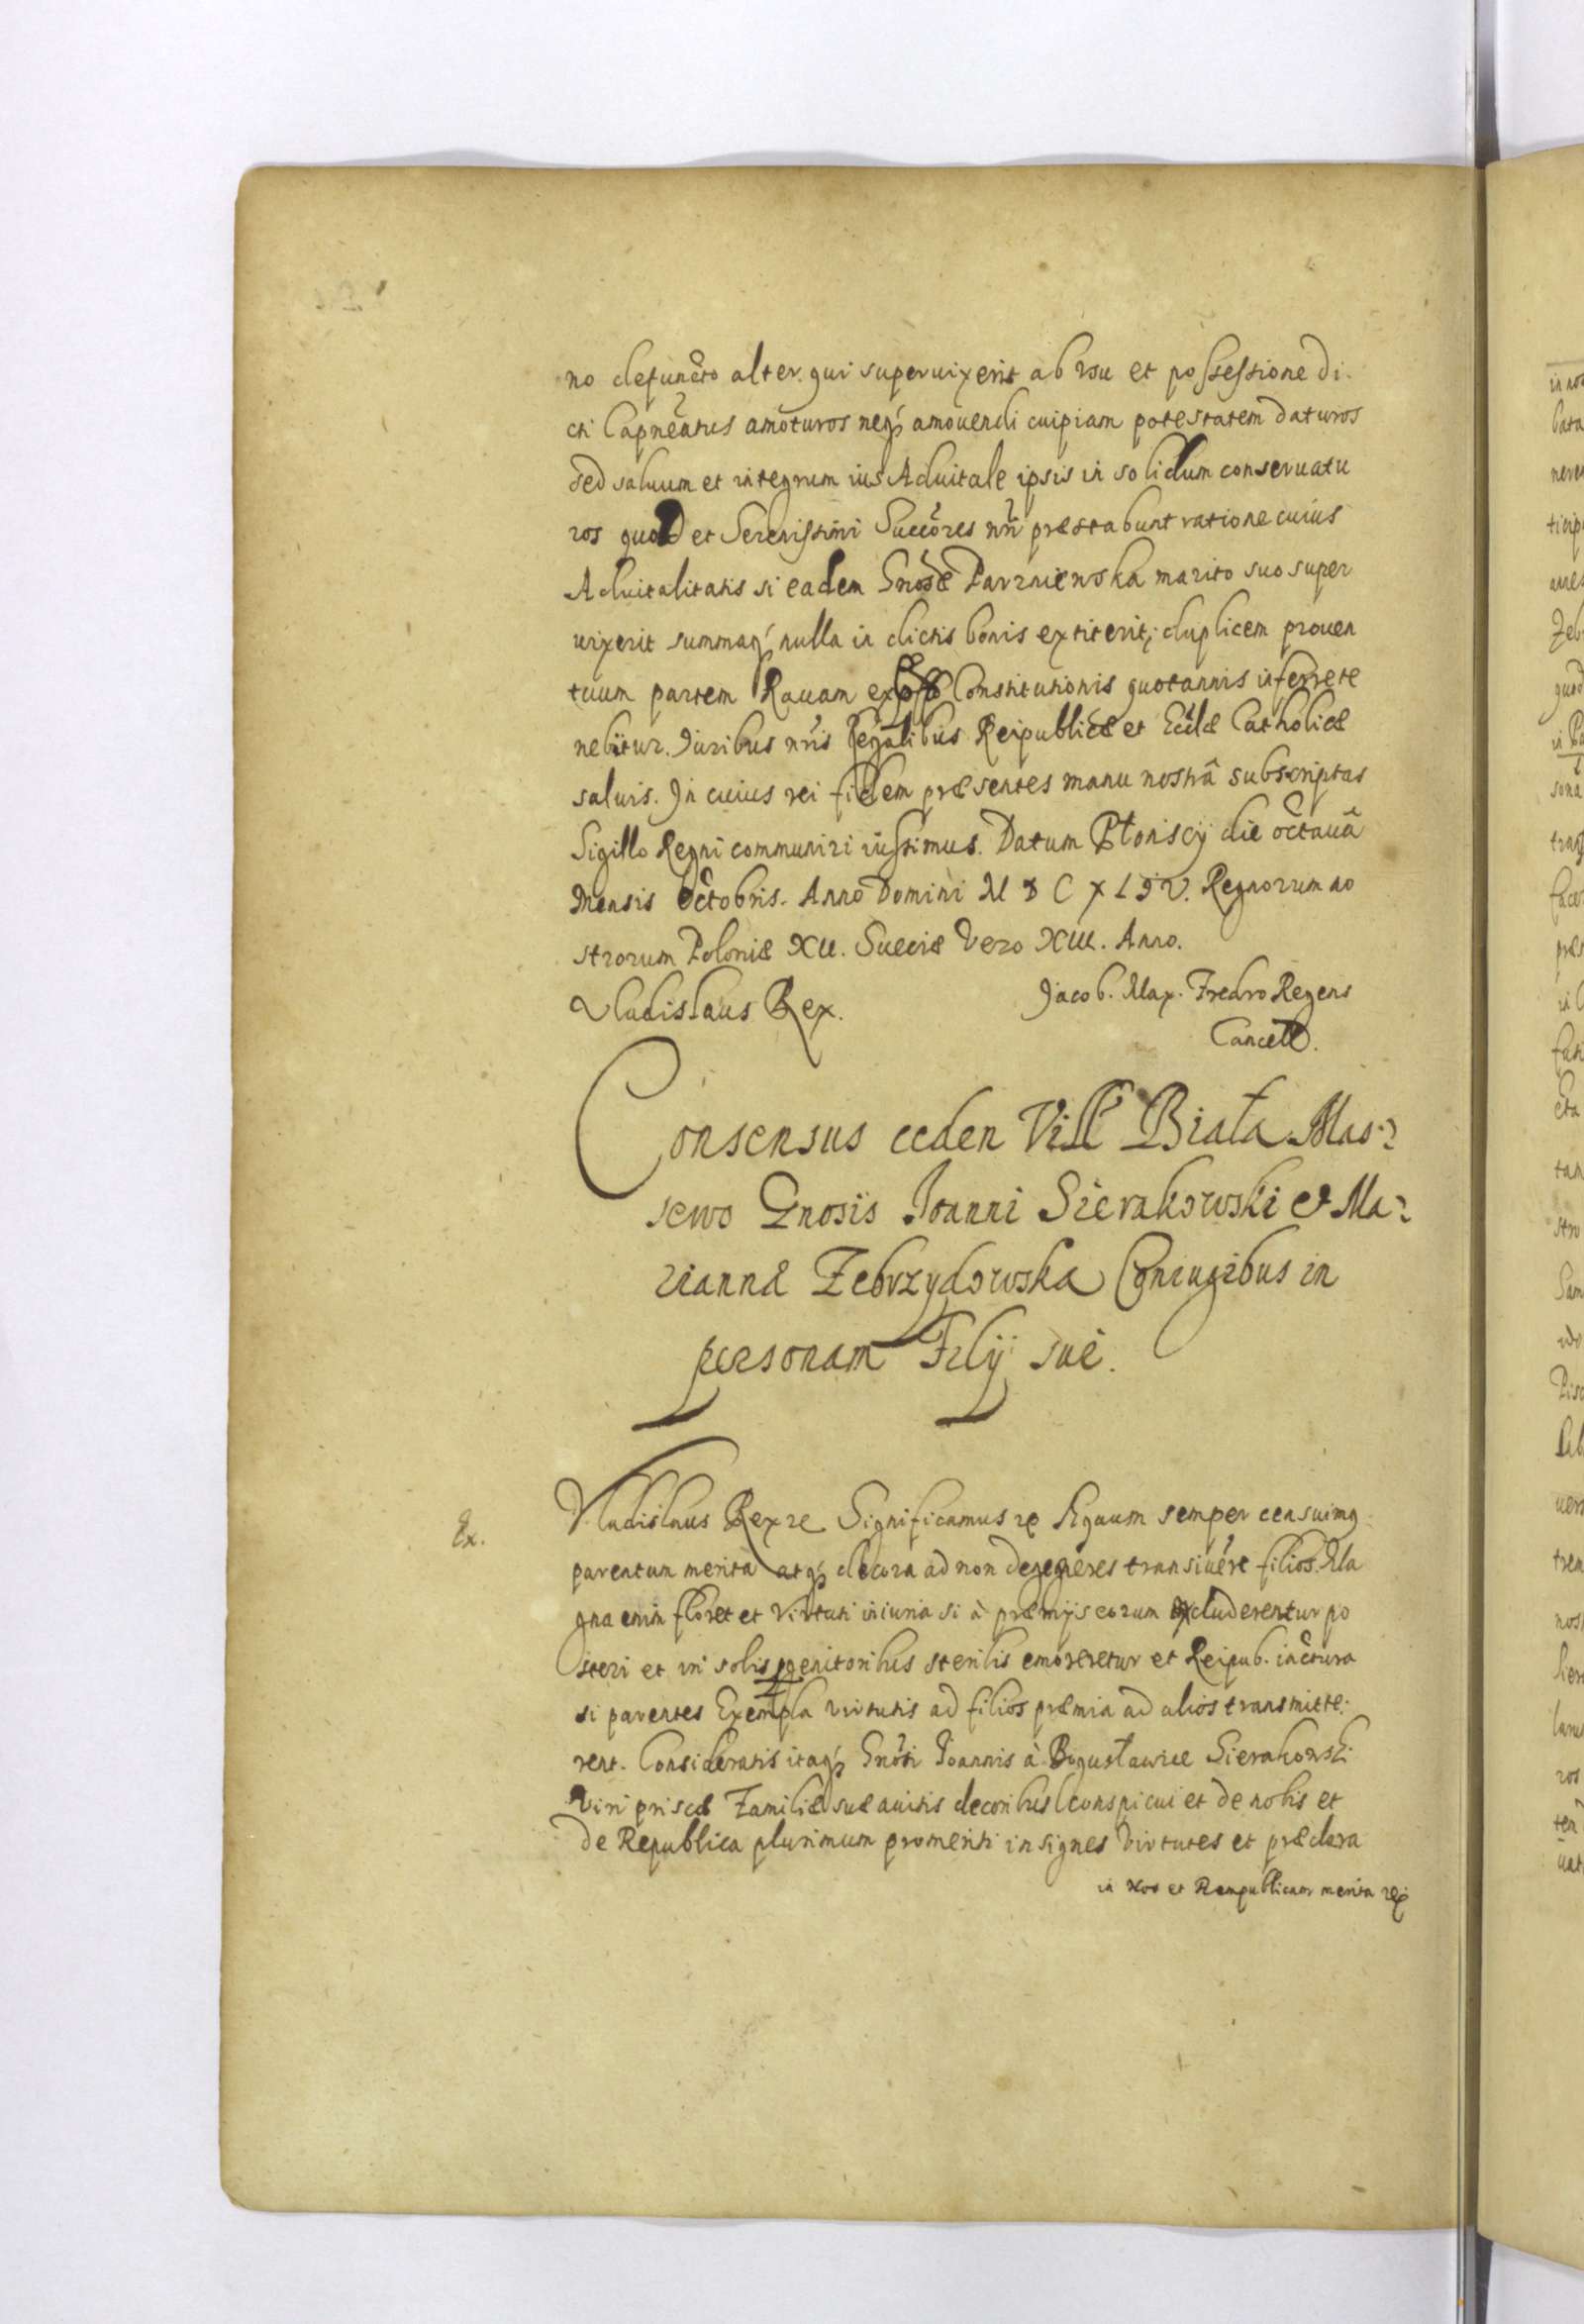 no defuncto alter. qui supervixerit ab vsu et possessione di.
cti Capneatus amoturos neq́ꝫ amouendi cuipiam potestatem daturos
sed saluum et integrum ius Aduitale ipsis in solidum conseruatu
ros quod et Serenissimi Succōres nr̄i præstabunt ratione cuius
Aduitalitatis si eadem Gnosæ Parzniewska marito suo super
vixerit summaq́ꝫ nulla in dictis bonis extiterit; duplicem prouen
tuum partem Rauam ex Constitutionis quotannis inferre te
nebitur. Iuribus nr̄is Regalibus Reipublicæ et Eccl̄æ Catholicæ
saluis. In cuius rei fidem præsentes manu nostrâ subscriptas
Sigillo Regni communiri iussimus. Datum die octauâ
Mensis Octobris. Anno Domini M D C X L I V. Regnorum no
strorum Poloniæ XII. Sueciæ Vero XIII. Anno.
Vladislaus Rex. Jacob. Max. Fredro Regens
Cancell.
Consensus ceden Vill Biała Mas:
sewo Gnosis Joanni Sierakowski et Ma:
riannæ Zebrzydowska Coniugibus in
personam Filÿ sui.
Ex. Vladislaus Rex etc Significamus etc Æquum semper censuimꝰ
parentum merita atq́ꝫ decora ad non degeneres transiuêre filios. Ma
gna enim foret et Virtuti iniuria si à præmÿs eorum excluderentur po
steri et in solis genitoribus sterilis emoreretur et Reipub. iactura
si parentes Exempla virtutis ad filios præmia ad alios transmitte.
rent. Consideratis itaq́ꝫ Gnōsi Joannis à Bogusławice Sierakowski
Viri priscæ Familiæ suæ auitis decoribus conspicui et de nobis et
de Republica plurimum promeriti insignes Virtutes et præclara
in Nos et Rempublicam merita